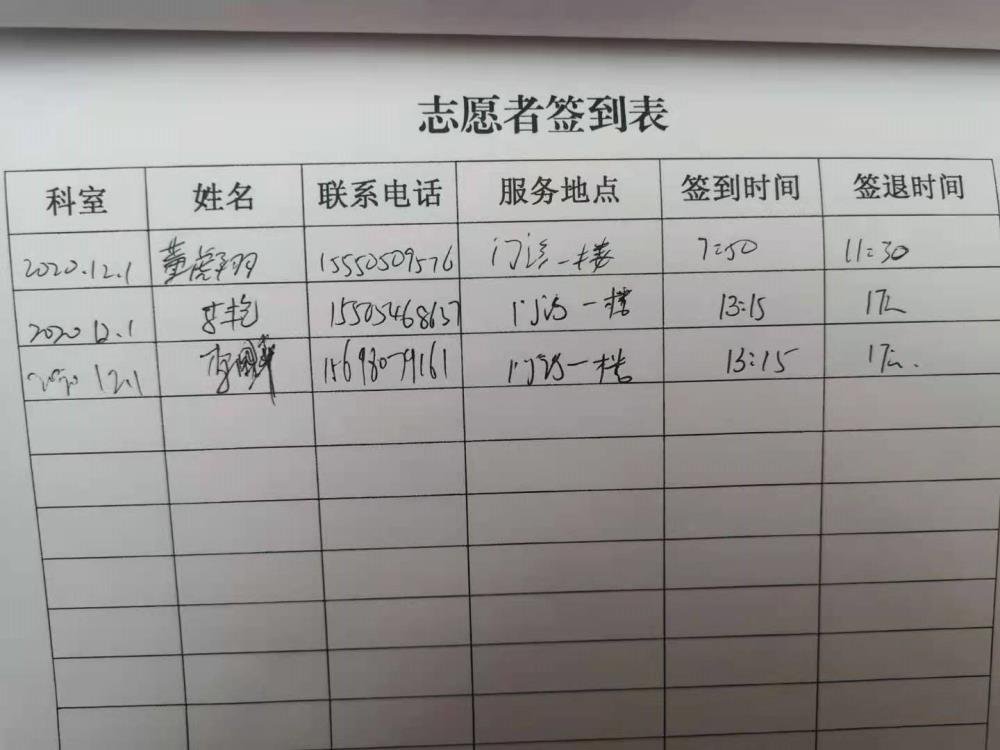 志愿者签到表
科室 姓名 联系电话 服务地点 签到时间 签退时间
2020.12.1 董虎翔 15550509576 门诊一楼 7:50 11:30
2020 12.1 15505468637 门诊一楼 13:15
2020 12.1 15698079161 门诊一楼 13:15